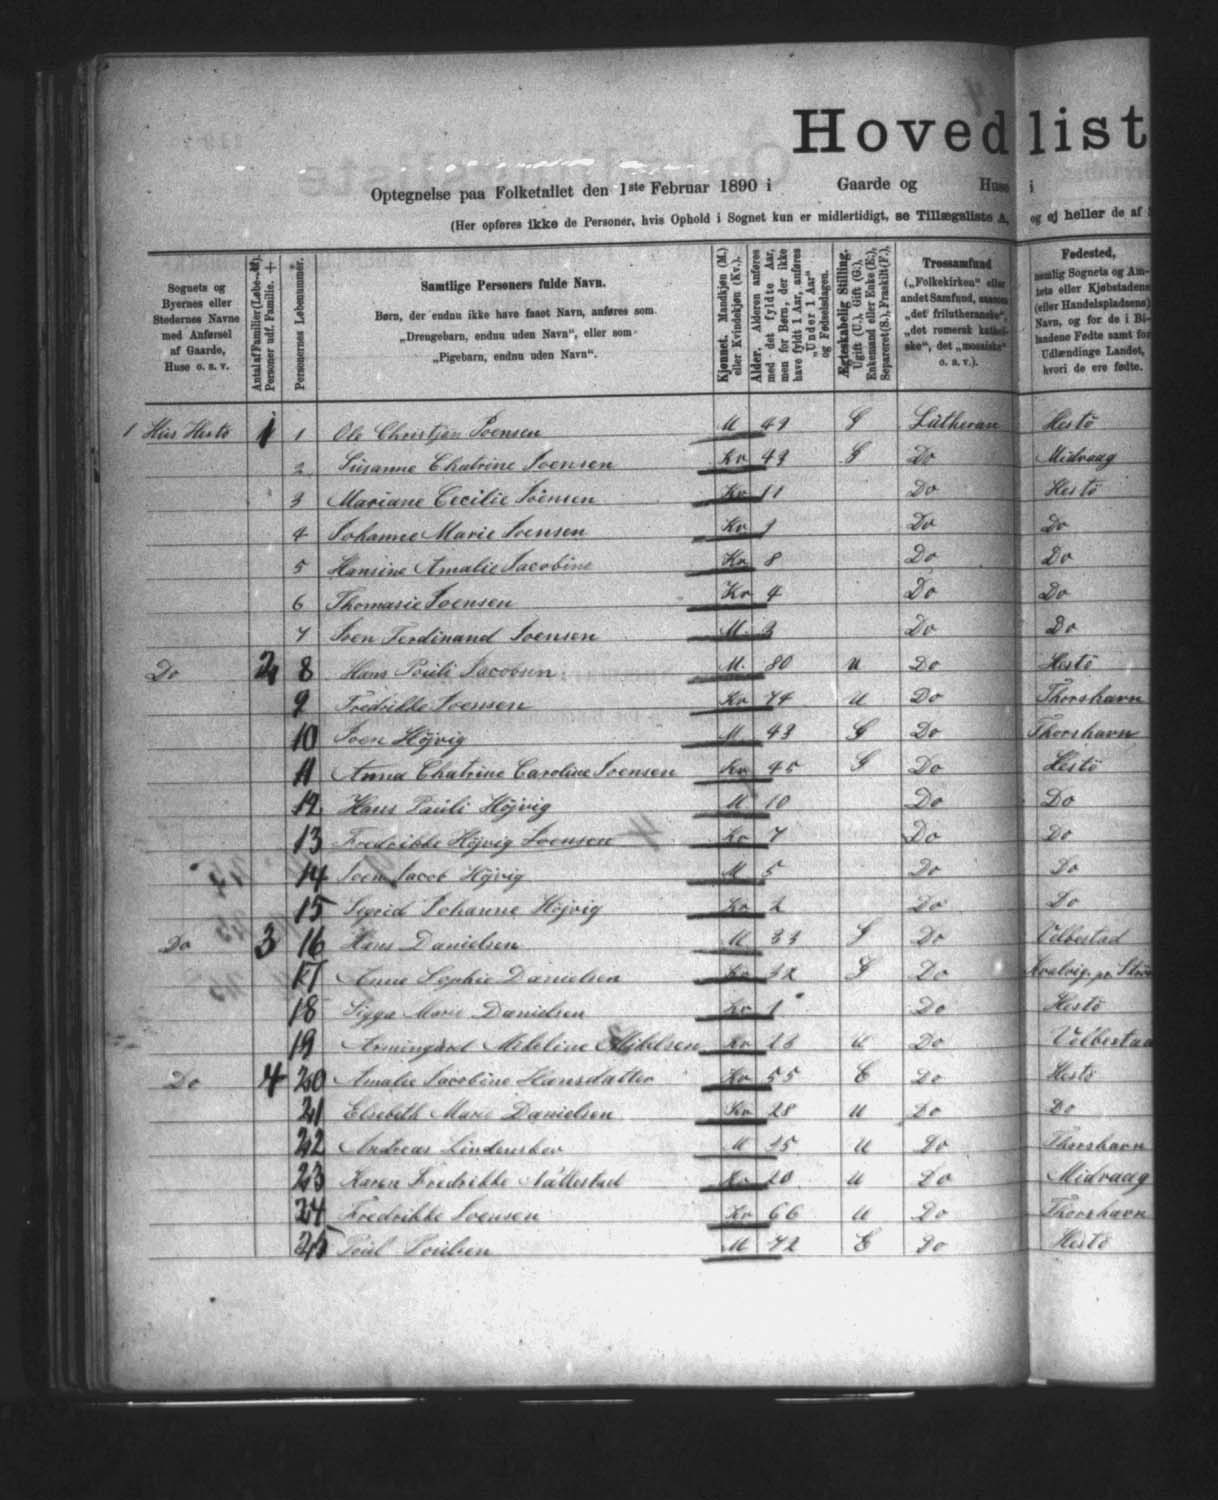 Hovedlist
Optegnelse paa Folketallet den 1ste Februar 1890 i Gaarde og Huse i
(Her opføres ikke de Personer, hvis Ophold i Sognet kun er midlertidigt, se Tillægsliste A, og ej heller de af
Sognets og
Byernes eller
Stedernes Navne
med Anførsel
af Gaarde,
Huse o. s. v.
Antal af Familier (Løbe-№).
Personer udf. Familie. +
Personernes Løbenummer.
Samtlige Personers fulde Navn.
Børn, der endnu ikke have faaet Navn, anføres som
„Drengebarn, endnu uden Navn“, eller som
„Pigebarn, endnu uden Navn“.
Kjønnet. Mandkjøn (M.)
eller Kvindekjøn (Kv.).
Alder. Alderen anføres
med det fyldte Aar,
men for Børn, der ikke
have fyldt 1 Aar, anføres
„Under 1 Aar“
og Fødselsdagen.
Ægteskabelig Stilling.
Ugift (U.), Gift (G.),
Enkemand eller Enke (E.),
Separeret (S.), Fraskilt (F.).
Trossamfund
(„Folkekirken“ eller
andet Samfund, saasom
„det frilutheranske“,
„det romersk katholske“, det „mosaiske“
o. s. v.).
Fødested,
nemlig Sognets og Amtets eller Kjøbstadens
(eller Handelspladsens)
Navn, og for de i Bilandene Fødte samt for
Udlændinge Landet,
hvori de ere fødte.
1 Hus Hestö 1 1 Ole Christjan Joensen M 49 G Lütheran Hestö
2 Susanne Chatrine Joensen Kv 43 G Do Midvaag
3 Mariane Cecilie Joensen Kv 11 Do Hestö
4 Johanne Marie Joensen Kv Do Do
5 Hansine Amalie Jacobine Kv 8 Do Do
6 Thomasie Joensen Kv 4 Do Do
7 Joen Ferdinand Joensen M. 3 Do Do
Do 2 8 Hans Pouli Jacobsen M. 80 u Do Hestö
9 Fredrikke Joensen Kv 74 U Do Thorshavn
10 Joen Höjvig M. 43 G Do Thorshavn
11 Anna Chatrine Caroline Joensen Kv 45 G Do Hestö
12 Hans Pauli Höjvig M 10 Do Do
13 Fredrikke Höjvig Joensen Kv 7 Do Do
14 Joen Jacob Höjvig M 5 Do Do
15 Sigrid Johanne Höjvig Kv 2 Do Do
Do 3 16 Hans Danielsen M 33 G Do Velbestad
17 Anne Sophie Danielsen Kv 32 G Do Kvalvig pr
18 Sigga Marie Danielsen Kv 1 Do Hestö
19 Armingard Mikeline Mikelsen Kv 23 U Do Velbestad
Do 4 20 Amalie Jacobine Hansdatter Kv 55 E Do Hestö
21 Elsebeth Marie Danielsen Kv 28 U Do Do
22 Andreas Lindenskov M U Do Thorshavn
23 Karen Fredrikke Nattestad Kv 20 U Do Midvaag
24 Fredrikke Joensen Kv 66 U Do Thorshavn
25 Poul Poulsen M 72 E Do Hestö